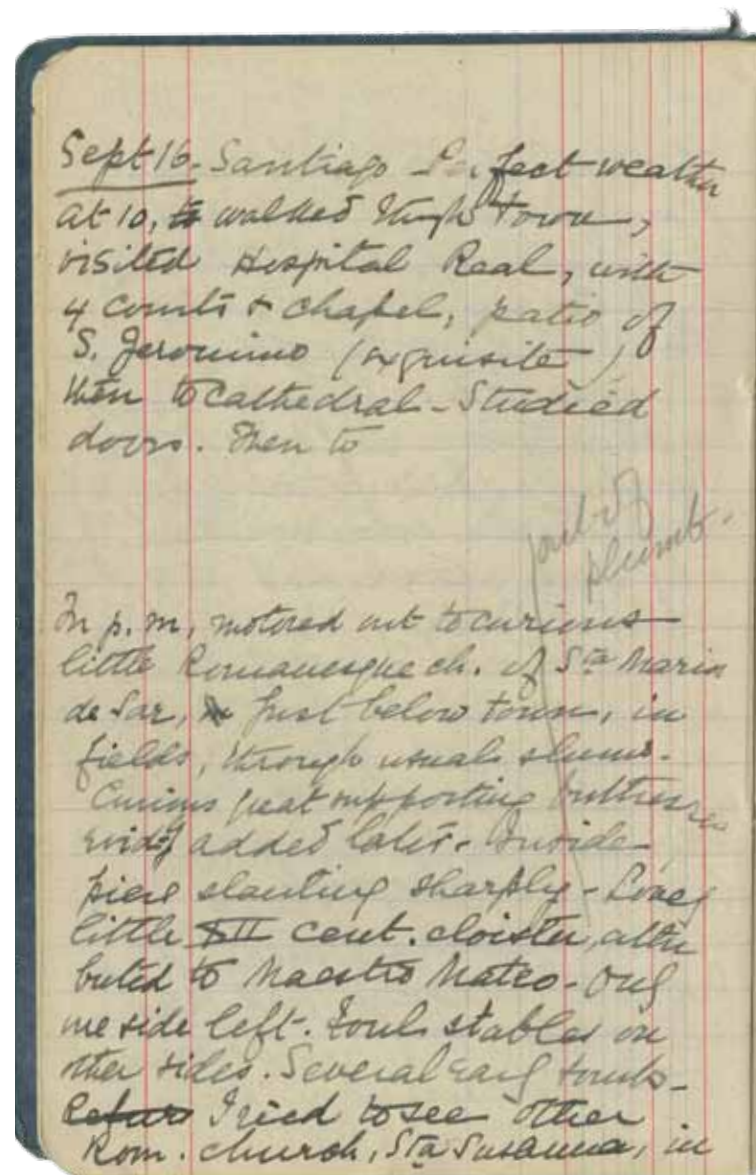 Sept 16. Santiago Perfect weather
at 10, to walked through town,
visited Hospital Real, with
4 courts & chapel, patio of
S. Jeronimo (exquisite)
then to Cathedral - Studied
doors. Then to
out of
plumb.
In p.m, motored out to curious
little Romanesque ch. of Sta Maria
de Sar, just below town, in
fields, through usual slums.
Curious great supporting buttresses
evidly added later. Inside
piers slanting sharply - Lovely
little XII cent. cloister, attri
buted to Maestro Mateo - Only
one side left. Foul stables on
other sides. Several early tombs -
Retur Tried to see other
Rom. church, Sta Susanna, in